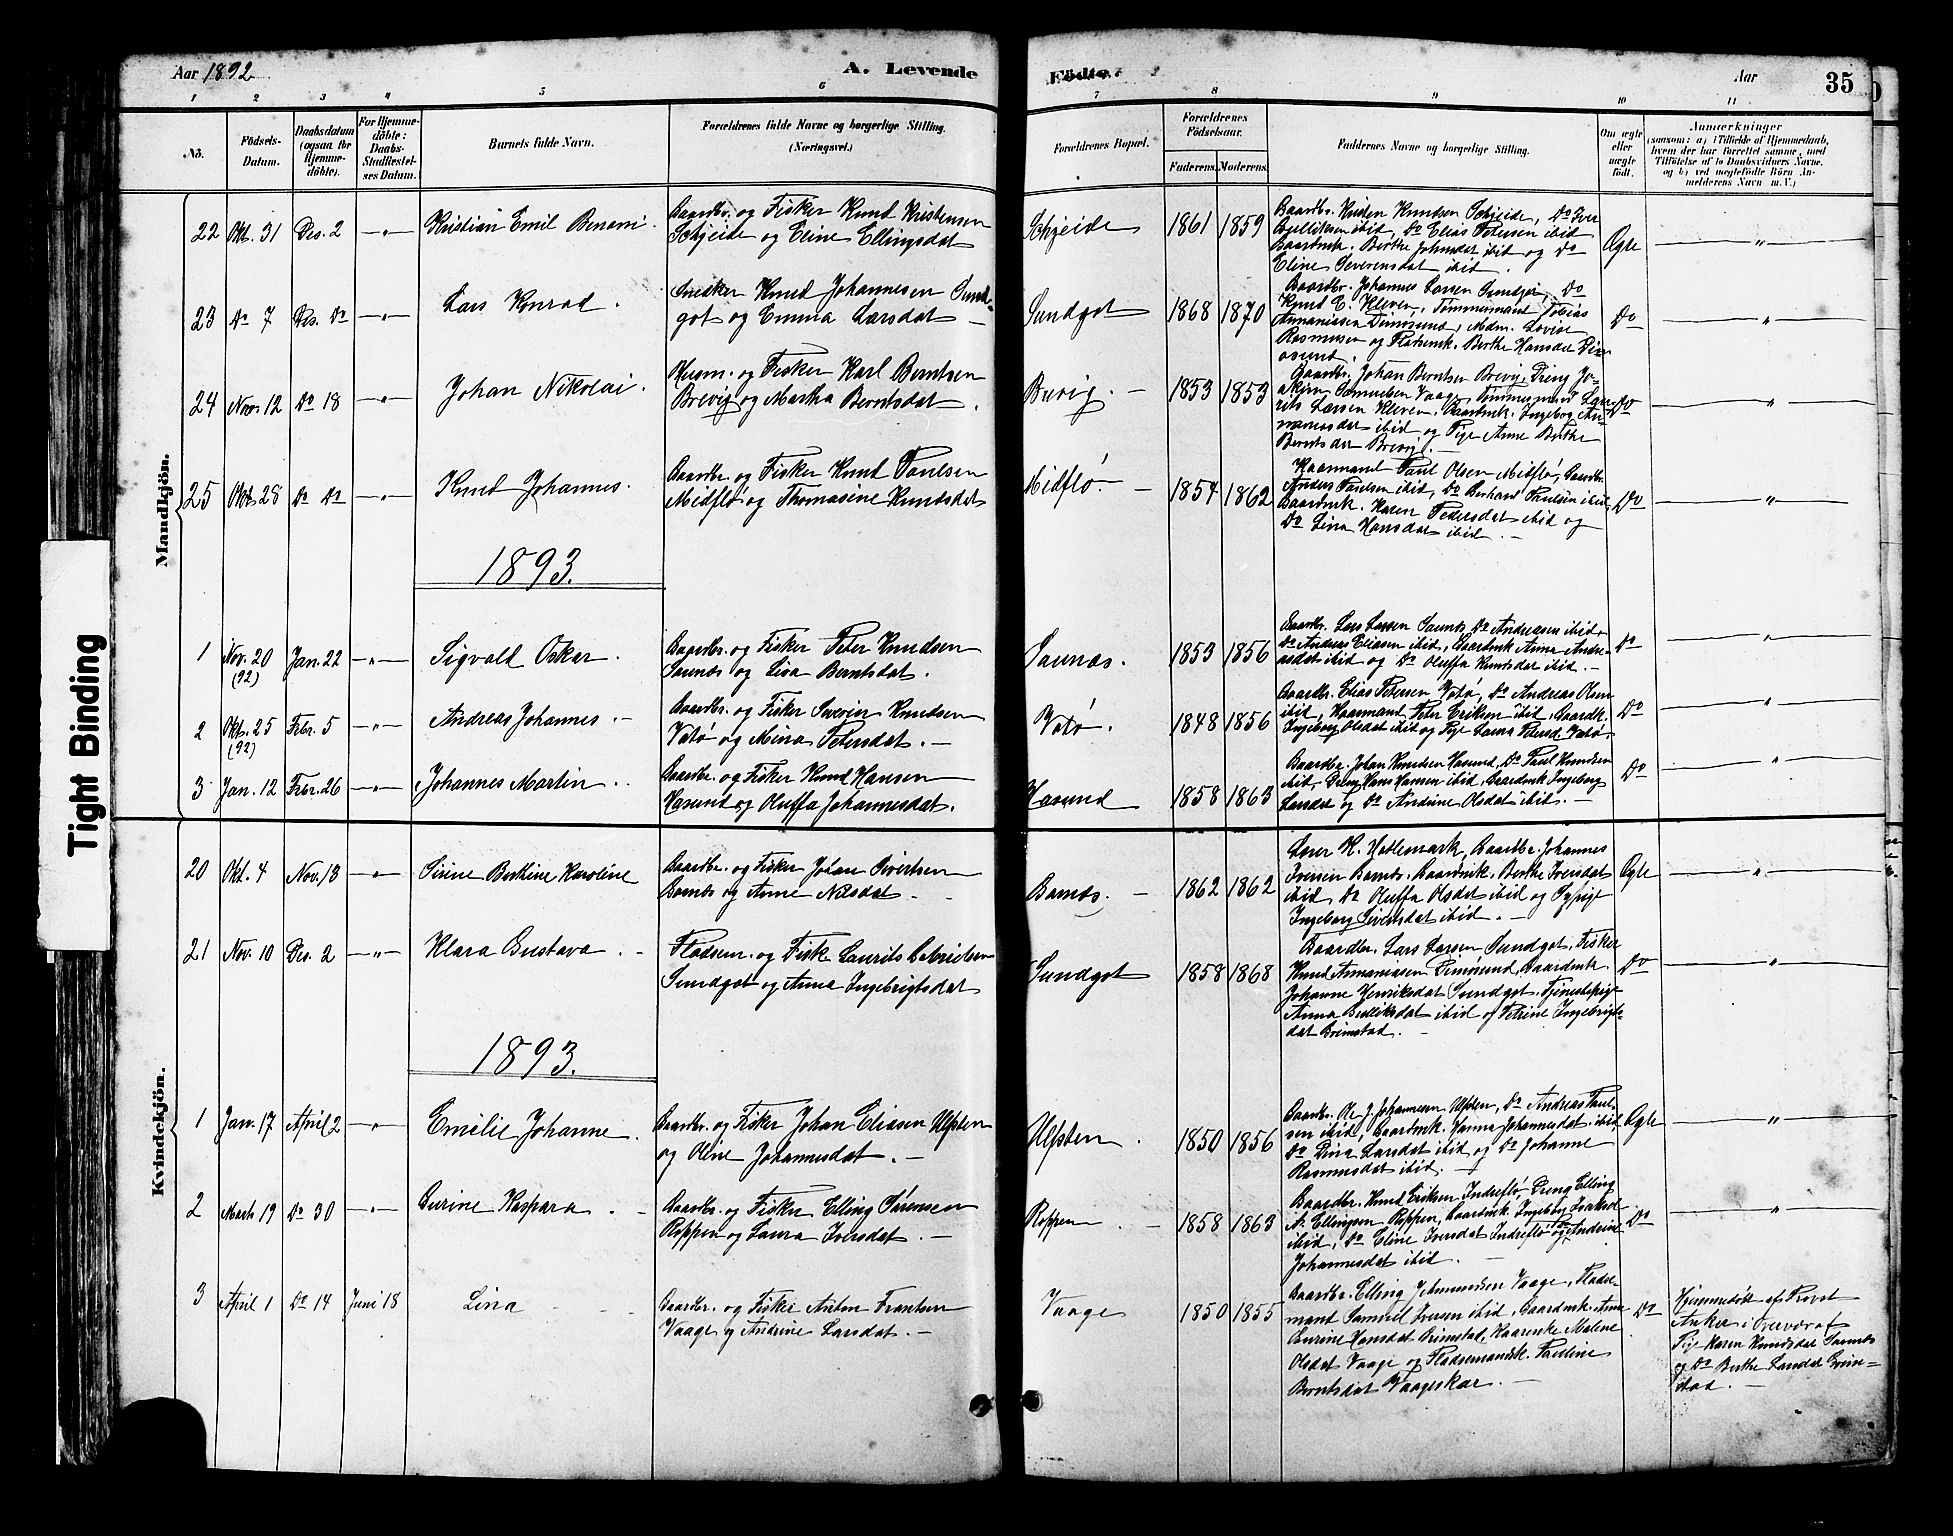 Aar 1892
A. Levende
Födte.
Aar
35
1
2
3
4
5
6
7
8
9
10
11
No.
Födsels-
Datum.
Daabsdatum
(ogsaa for
Hjemme-
döbte).
For Hjemme-
döbte:
Daabs-
Stadfæstel-
ses Datum.
Barnets fulde Navn.
Forældrenes fulde Navne og borgerlige Stilling.
(Næringsvei.)
Forældrenes Bopæl.
Forældrenes
Födselsaar.
Faderens.
Moderens.
Faddernes Navne og borgerlige Stilling.
Om ægte
eller
uægte
födt.
Anmærkninger
(saasom: a) i Tilfælde af Hjemmedaab,
hvem der har forrettet samme, med
Tilföielse af to Daabsvidners Navne,
og b) ved uægtefödte Börn An-
melderens Navn m. V.)
Mandkjön.
22 Okt. 31 Des. 2 -"- Kristian Emil Benoni
Gaardbr. og Fisker Knud Kristensen
Schjeide og Eline Ellingsdat
Schjeide 1861 1859
Gaardbr. Kristen Knudsen Schjeide, Do Iver
ibid, Do Elias Petersen ibid
Gaardmk. Berthe ibid og Do
Eline Severensdat ibid.
Ægte "
23 Do 7 Des. Do -"- Lars Konrad.
Snedker Knud Johannesen Sund-
got og Emma Larsdat -
Sundgot 1868 1870
Gaardbr. Johannes Larsen Sundgot, Do
Knud E. Kleven, Tømmermand Tobias
Annaniassen Dimøsund, Mdm. Lovise
Rasmussen og Pladsmk. Berthe Hansdat Dim-
øsund.
Do "
24 Nov. 12 Do 18 -"- Johan Nikolai.
Husm. og Fisker Karl Berntsen
Brevig og Martha Berntsdat.
Brevig. - 1853 1853
Gaardbr. Johan Berntsen Brevig, Dreng Jo-
akim Samuelsen Vaage, Tømmermand Lau-
rits Larsen Kleven, Gaardmk. Ingeborg An-
ibid og Pige Anne Berthe
Berntsdat Brevig. -
Do "
25 Okt. 28 Do Do -"- Knud Johannes.
Gaardbr. og Fisker Knud Paulsen
Midflø og Thomasine Knudsdat
Midflø. - 1854 1862
Kaarmand Paul Olsen Midflø, Gaardbr.
Anders Paulsen ibid, Do Bernhard Paulsen ibid,
Gaardmk. Karen Pedersdat ibid og
Do Lina Hansdat ibid. -
Do "
1893.
1 Nov. 20 (92) Jan. 22 -"- Sigvald Oskar.
Gaardbr. og Fisker Peter Knudsen
Saunes og Lisa Berntsdat.
Saunes. 1853 1856
Gaardbr. Lars Larsen Saunes, Do Andreasen ibid,
Do Andreas Eliasen ibid, Gaardmk Anna Andre-
asdat ibid og Do Oluffa Knudsdat ibid. -
Do "
2 Okt. 25 (92) Febr. 5 -"- Andreas Johannes. -
Gaardbr. og Fisker Severin Knudsen
Vatø og Mina Petersdat. -
Vatø. 1848 1856
Gaardbr. Elias Petersen Vatø, Do Andreas Olsen
ibid, Kaarmand Peter Eriksen ibid, Gaardk.
Ingeborg Olsdat ibid og Pige Laura Petersd. Vatø.
Do "
3 Jan. 12 Febr. 26 -"- Johannes Martin.
Gaardbr. og Fisker Knud Hansen
Hasund og Oluffa Johannesdat.
Hasund 1858 1863
Gaardbr. Johan Knudsen Hasund, Do Paul Knudsen
ibid, Dreng Hans Hansen ibid, Gaardmk Ingeborg
Larsdat og Do Andrine Olsdat ibid. -
Do "
Kvindekjön.
20 Okt. 4 Nov. 13 -"- Sirine Berthine Karoline
Gaardbr. og Fisker Johan Sivertsen
Botnes og Anne Nilsdat
Botnes. - 1862 1862
Lærer H. Hatlemark, Gaardbr. Johannes
Iversen Botnes. Gaardmk. Berthe Iversdat
ibid, Do Oluffa Olsdat ibid og Sypige
Ingeborg Sivertsdat ibid. -
Ægte "
21 Nov. 10 Des. 2 -"- Klara Gustava. -
Pladsm. og Fisk Laurits Gabrielsen
Sundgot og Anna Ingebrigtsdat
Sundgot 1858 1868
Gaardbr. Lars Larsen Sundgot, Fisker
Knud Annaniassen Dimøsund, Gaardmk.
Johanne Henriksdat Sundgot, Tjenestepige
Anna ibid og Petrine Ingebrigts-
dat Grimstad. -
Do "
1893.
1 Jan. 17 April 2 -"- Emilie Johanne.
Gaardbr. og Fisker Johan Eliasen Ulfsten
og Oline Johannesdat. -
Ulfsten. 1850 1856
Gaardbr. Ole J. Johannesen Ulfsten, Do Andreas Paul-
sen ibid, Gaardmk. Hanna Johannesdat ibid,
Do Dina Larsdat ibid og Do Johanne
Rasmusdat ibid. -
Ægte "
2 Marts 19 Do 30 -"- Gurine Kaspara. -
Gaardbr. og Fisker Elling Sørensen
Røppen og Laura Iversdat. -
Røppen - 1858 1863
Gaardbr. Knud Eriksen Indreflø, Dreng Elling
A. Ellingsen Røppen, Gaardmk. Ingeborg Isaksd.
ibid, Do Eline Iversdat Indreflø og Andrine
Johannesdat ibid.
Do "
3 April 1 Do 14 Juni 18 Lina
Gaardbr. og Fisker Anton Frantsen
Vaage og Andrine Larsdat. -
Vaage 1850 1855
Gaardbr. Elling Vaage, Pladse-
mand Samuel Iversen ibid, Gaardmk. Anna
Gurine Hansdat Grimstad, Kaarenke Malene
Olsdat Vaage og Pladsemandsk. Pauline
Berntsdat Vaageskar. -
Do
Hjemmedøbt af Provst
Anker i Overvær af
Pige Karen Knudsdat Saunes
og Do Berthe Larsdat Grim-
stad. -
Tight Binding